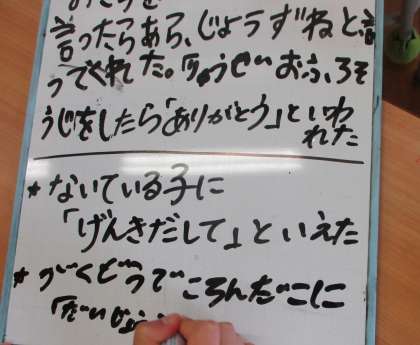 言ったらあら、じょうずねと言
ってくれた。「きゅうせいおふ、ろそ
うじをしたら「ありがとう」といわ
れた
★ ないている子に
「げんきだして」といえた
★ がくどうでころんだこに
「だいじょう